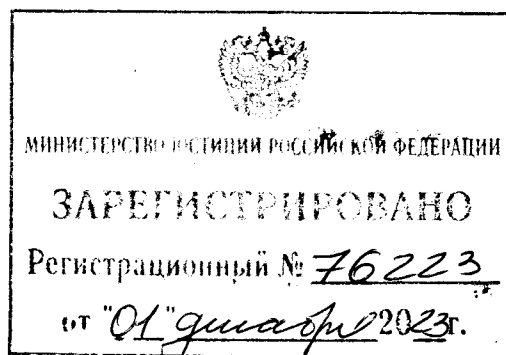 МИНИСТЕРСТВО ЮСТИЦИИ РОССИЙСКОЙ ФЕДЕРАЦИИ
ЗАРЕГИСТРИРОВАНО
Регистрационный № 76223
от "01" декабря 2023г.